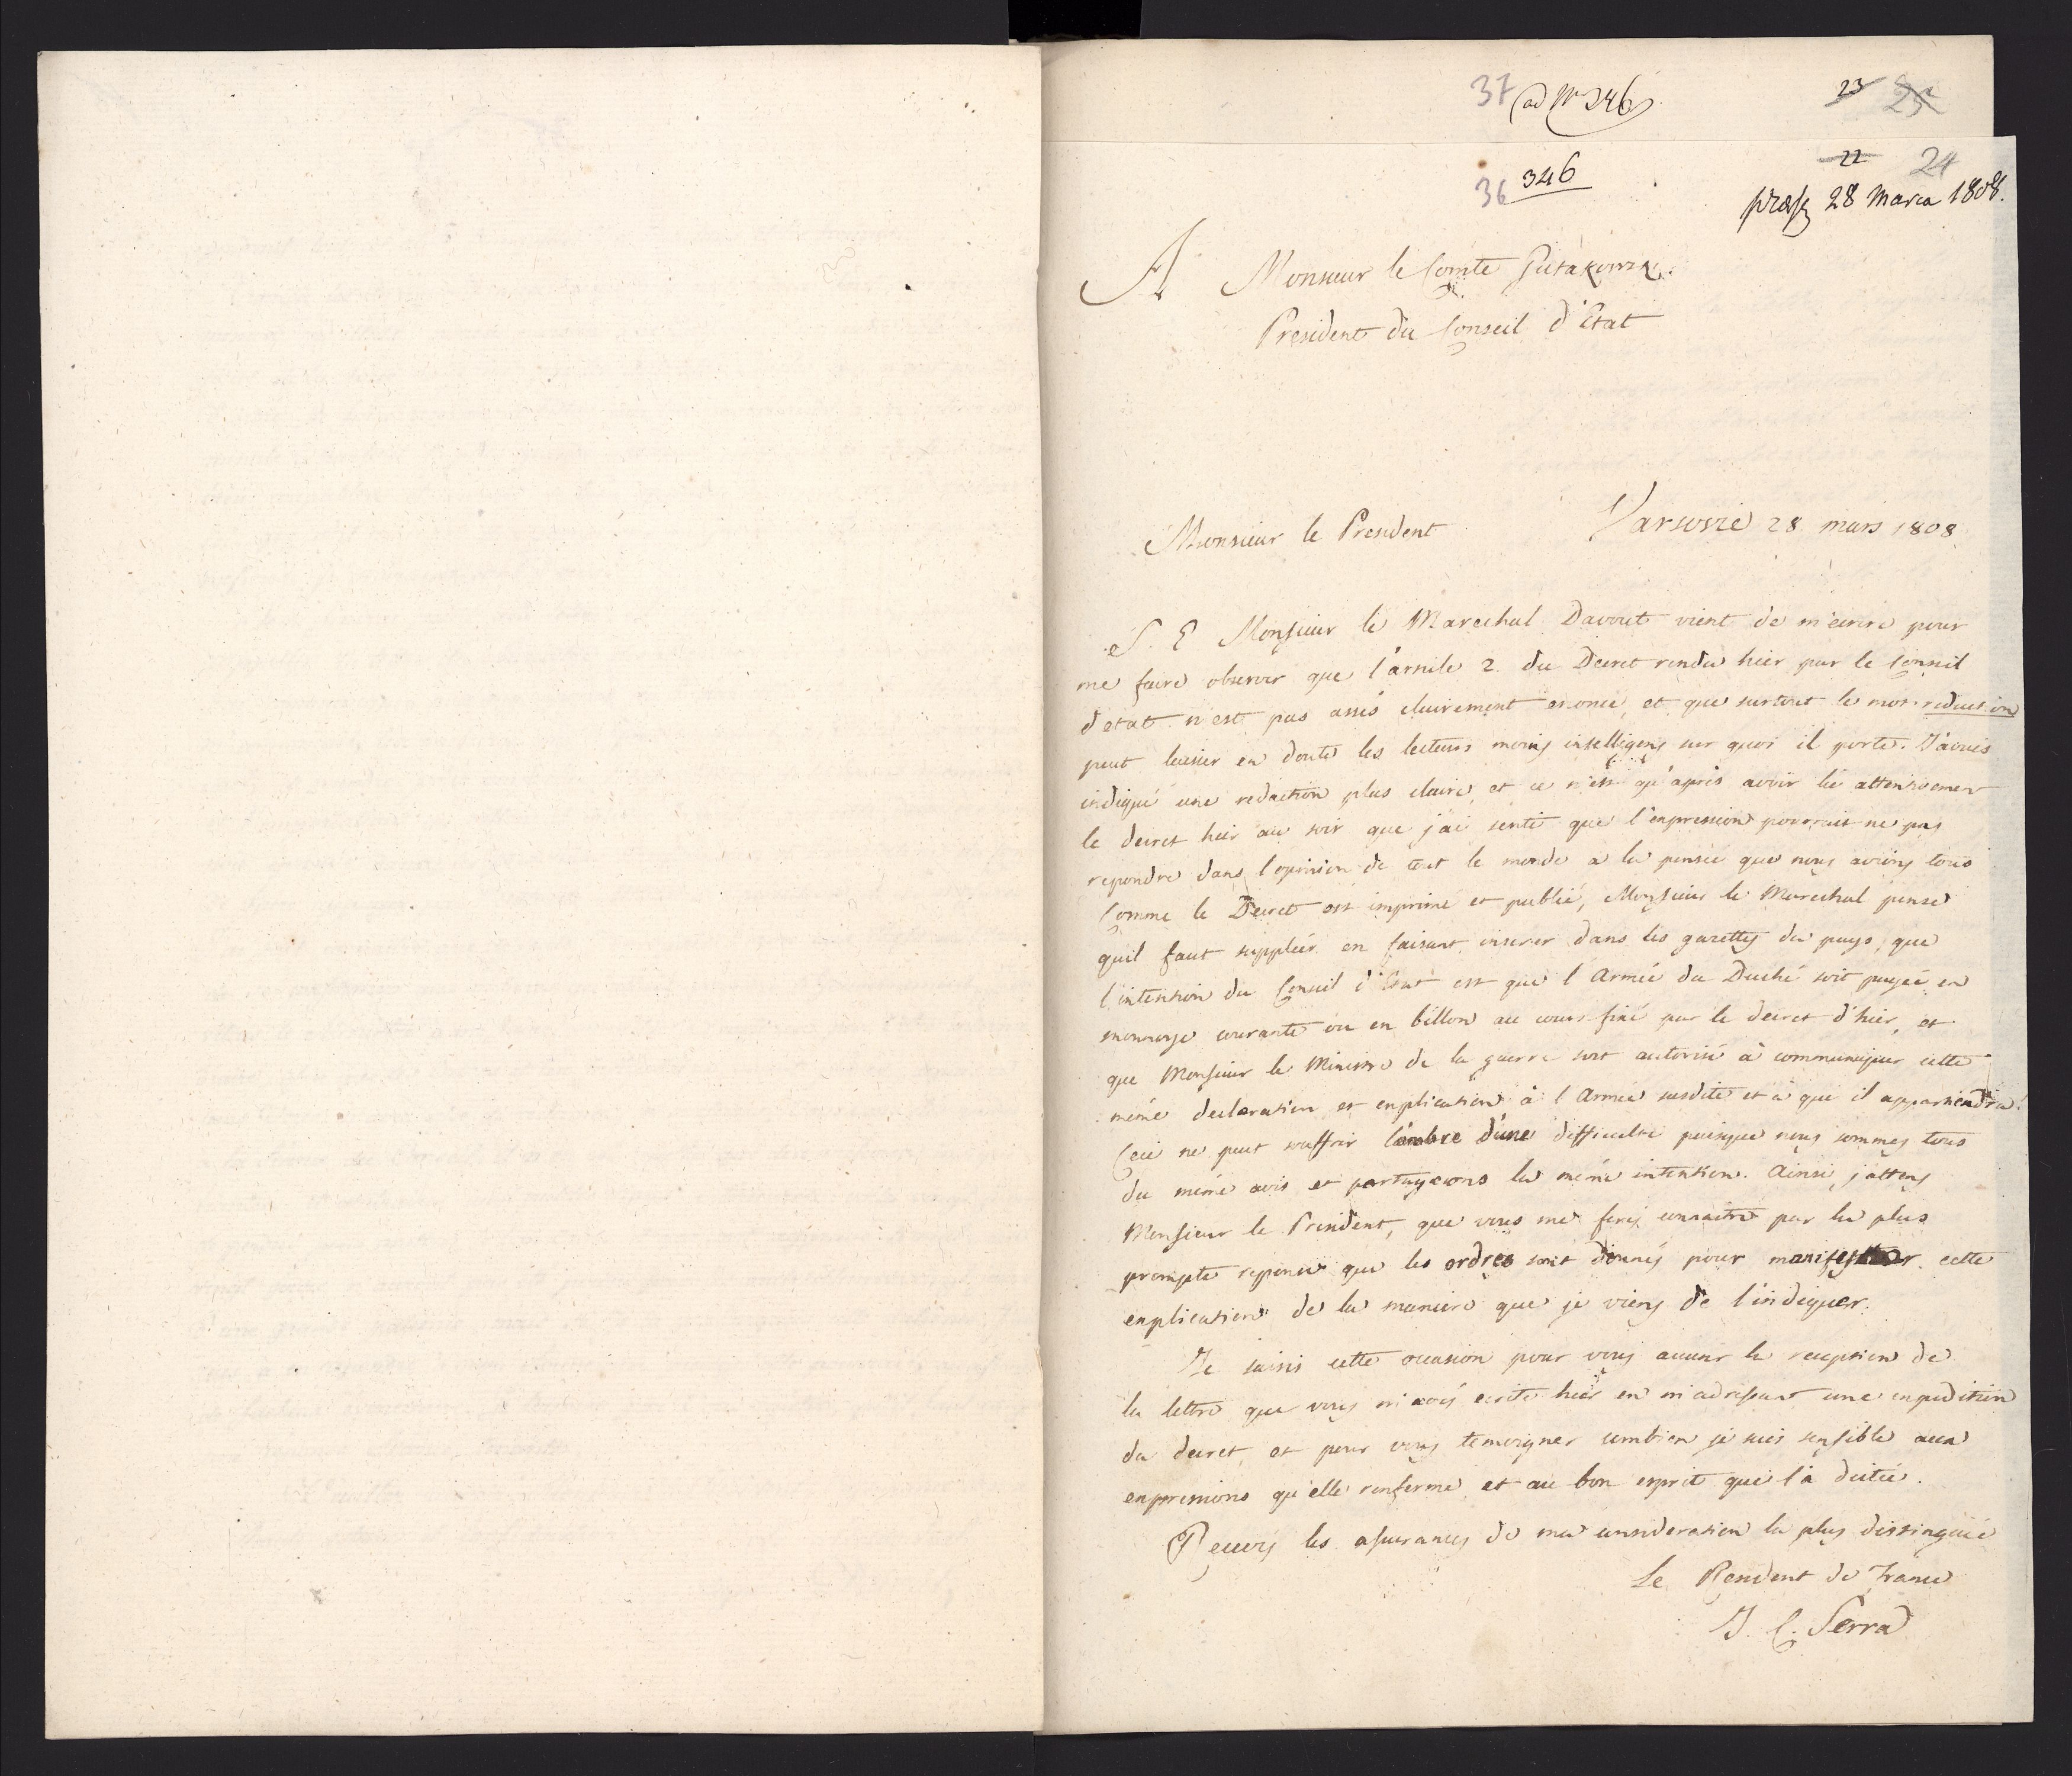 37 ad Nr 346
23 25
22 24
36 346
præs 28 Marca 1808.
A Monsieur le Comte Gutakowski
President du Conseil d'Etat
Monsieur le President Varsovie 28 mars 1808
S. E Monsieur le Marechal Davout vient de m'ecrire pour
me faire observer que l'article 2. du Decret rendu hier par le Conseil
d'etat n'est pas assés clairement enoncé, et que surtout le mot reduction
peut laisser en doute les lecteurs moins intelligens sur quoi il porte. J'avais
indiqué une redaction plus claire, et ce n'est qu'après avoir lu attentivement
le decret hier au soir que j'ai senti que l'expression pourrait ne pas
repondre dans l'opinion de tout le monde a la pensée que nous avions tous
Comme le Decret est imprimé et publié, Monsieur le Marechal pense
qu'il faut suppléer en faisant inserer dans les gazettes du pays, que
l'intention du Conseil d'Etat est que l'Armée du Duché soit payée en
monnoye courante ou en billon au cours fixé par le decret d'hier, et
que Monsieur le Ministre de la guerre soit autorisé à communiquer cette
même declaration et explication à l'Armée susdite et à qui il appartiendra.
Ceci ne peut souffrir l'ombre d'une difficulté puisque nous sommes tous
du même avis et partageons la même intention. Ainsi, j'attens
Monsieur le President, que vous me ferés connaitre par la plus
prompte reponse que les ordres sont donnés pour manifester cette
explication de la maniere que je viens de l'indiquer.
Je saisis cette occasion pour vous accuser la reception de
la lettre que vous m'avés ecrite hier en m'adressant une expedition
du decret, et pour vous temoigner combien je suis sensible aux
expressions qu'elle renferme et au bon esprit qui l'a dictée.
Recevés les assurances de ma consideration la plus distinguée
Le Resident de France
J. C. Serra